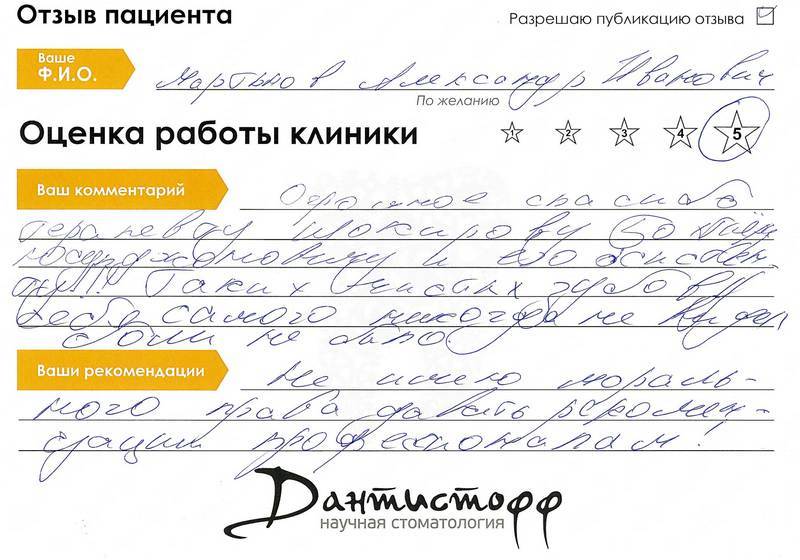 Отзыв пациента
Разрешаю публикацию отзыва
Ваше
Ф.И.О.
Мартынов Александр Иванович
По желанию
Оценка работы клиники
1 2 3 4 5
Ваш комментарий
Огромное спасибо
терапевту Шокирову
и его ассистен-
ту!!! Таких чистых зубов у
себя самого никогда не видел
боли не было.
Ваши рекомендации
Не имею мораль-
ного права давать рекомен-
дации профессионалам!
Дантистофф
научная стоматология